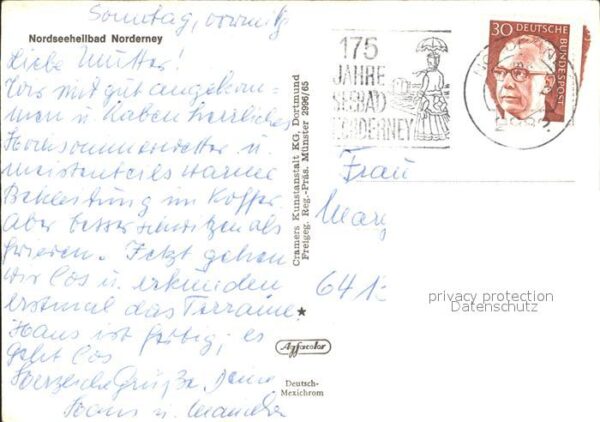 Sonntag, vormittg
Nordseeheilbad Norderney
Liebe Mutter!
Wir sind gut angekom-
men u. haben herrliches
Hochsommerwetter u.
meistenteils warme
Bekleidung im Koffer.
Aber besser schwitzen als
frieren. Jetzt gehen
wir los u. erkunden
erstmal das Terrain.
Hans ist fertig; es
geht los
Herzliche Grüße Deine
Hans u.
175
JAHRE
SEEBAD
NORDERNEY
30 DEUTSCHE
BUNDESPOST
2982
Cramers Kunstanstalt KG, Dortmund
Freigeg. Reg.-Präs. Münster 2996/65
Frau
64
privacy protection
Datenschutz
Agfacolor
Deutsch-
Mexichrom